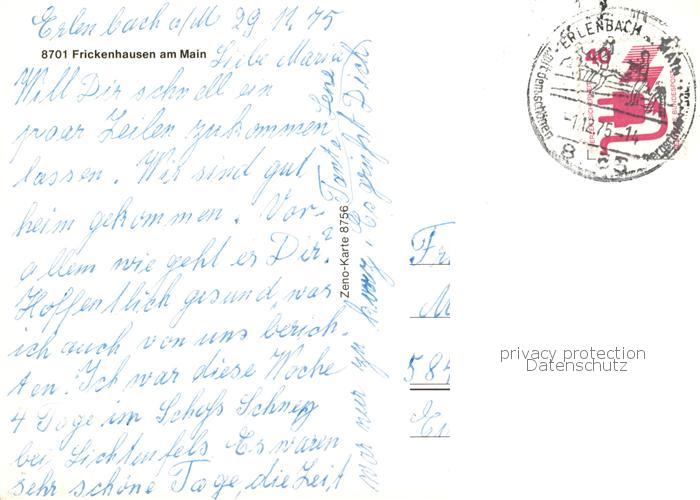 Erlenbach a/M 29 11. 75
8701 Frickenhausen am Main
Liebe Maria
Will Dir schnell ein
paar Zeilen zukommen
lassen. Wir sind gut
heim gekommen. Vor-
allem wie geht es Dir?
Hoffentlich gesund, was
ich auch von uns berich.
ten. Ich war diese Woche
4 Tage im Schloß Schney
bei Lichtenfels Es waren
sehr schöne Tage, die Zeit
war nur zu kurz. Es grüßt Dich
Tante Lene
Zeno-Karte 8756
ERLENBACH
MAIN
40
-1.12.75-14
Fr
M
584
privacy protection
Datenschutz